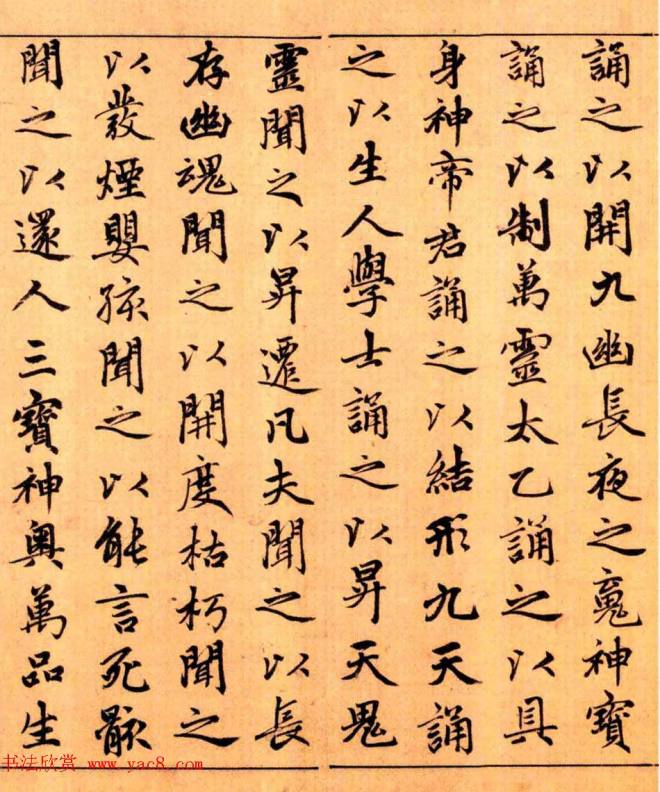 誦之以開九幽長夜之䰟神寶
誦之以制萬靈太乙誦之以具
身神帝君誦之以結形九天誦
之以生人學士誦之以昇天鬼
靈聞之以昇遷凡夫聞之以長
存幽魂聞之以開度枯朽聞之
以發煙嬰孩聞之以能言死骸
聞之以還人三寶神奧萬品生
书法欣赏 www.yac8.com